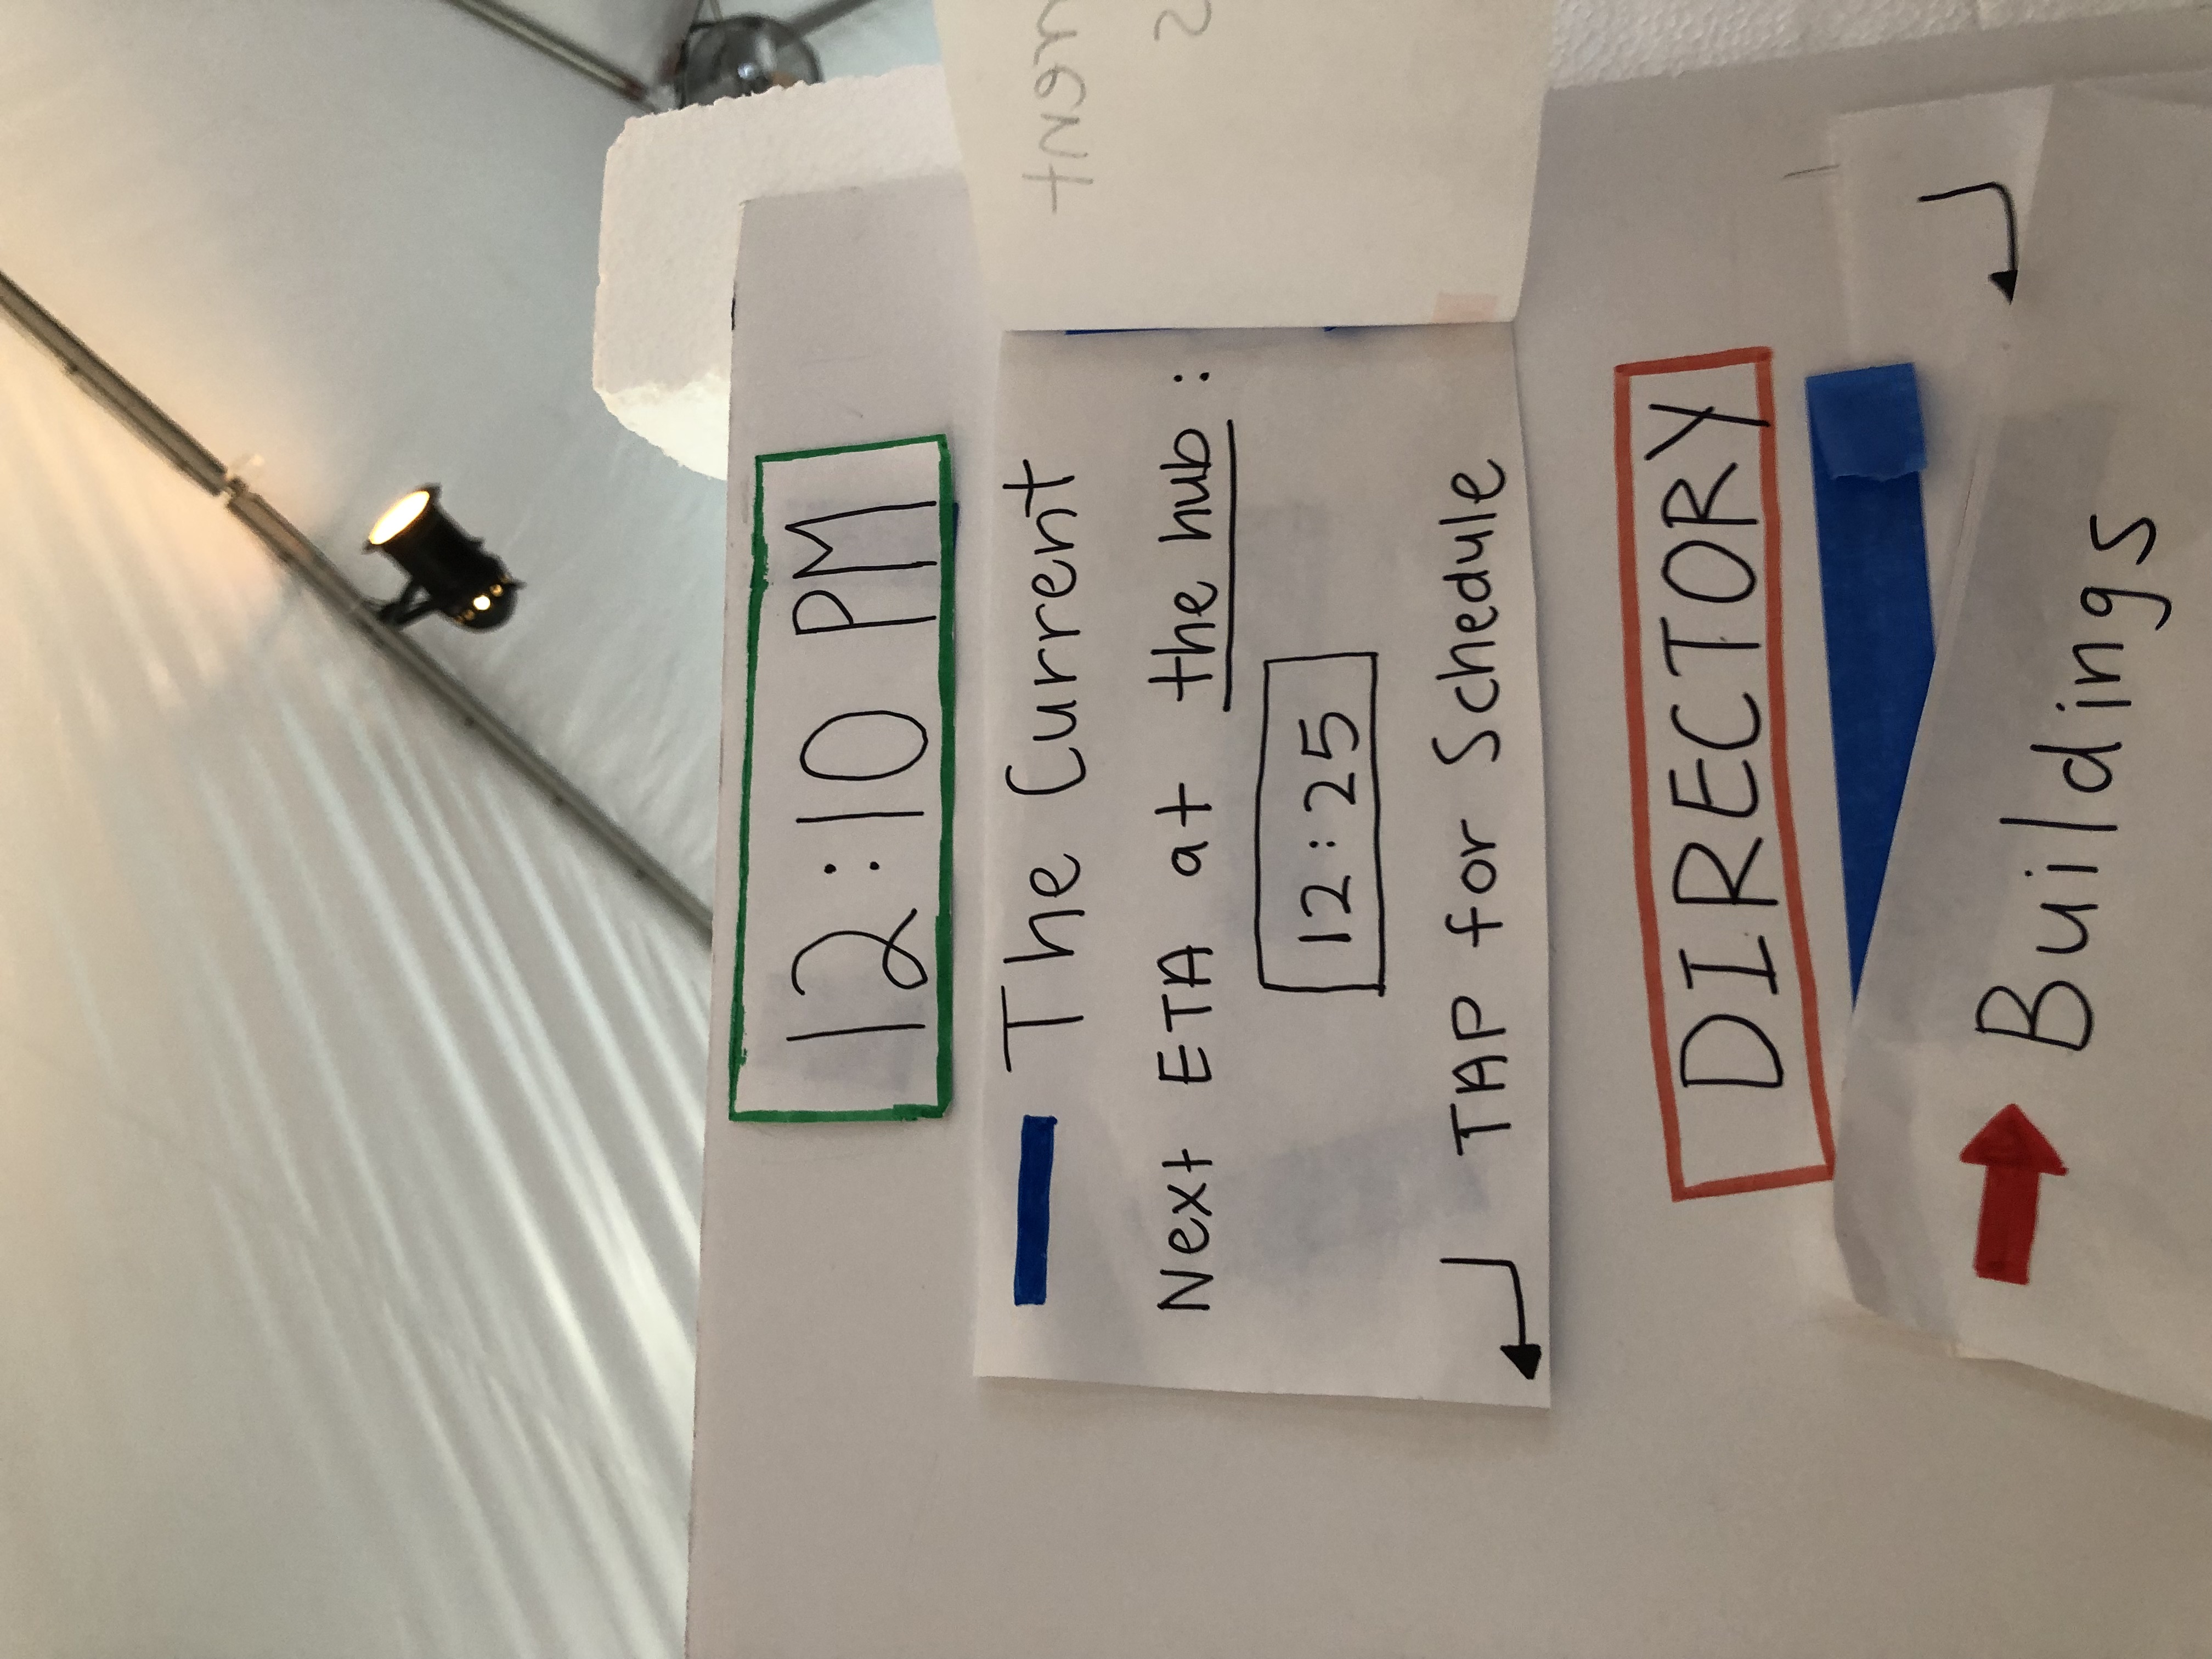 12:10 PM
The Current
Next ETA at the hub:
12:25
TAP for Schedule
DIRECTORY
Buildings